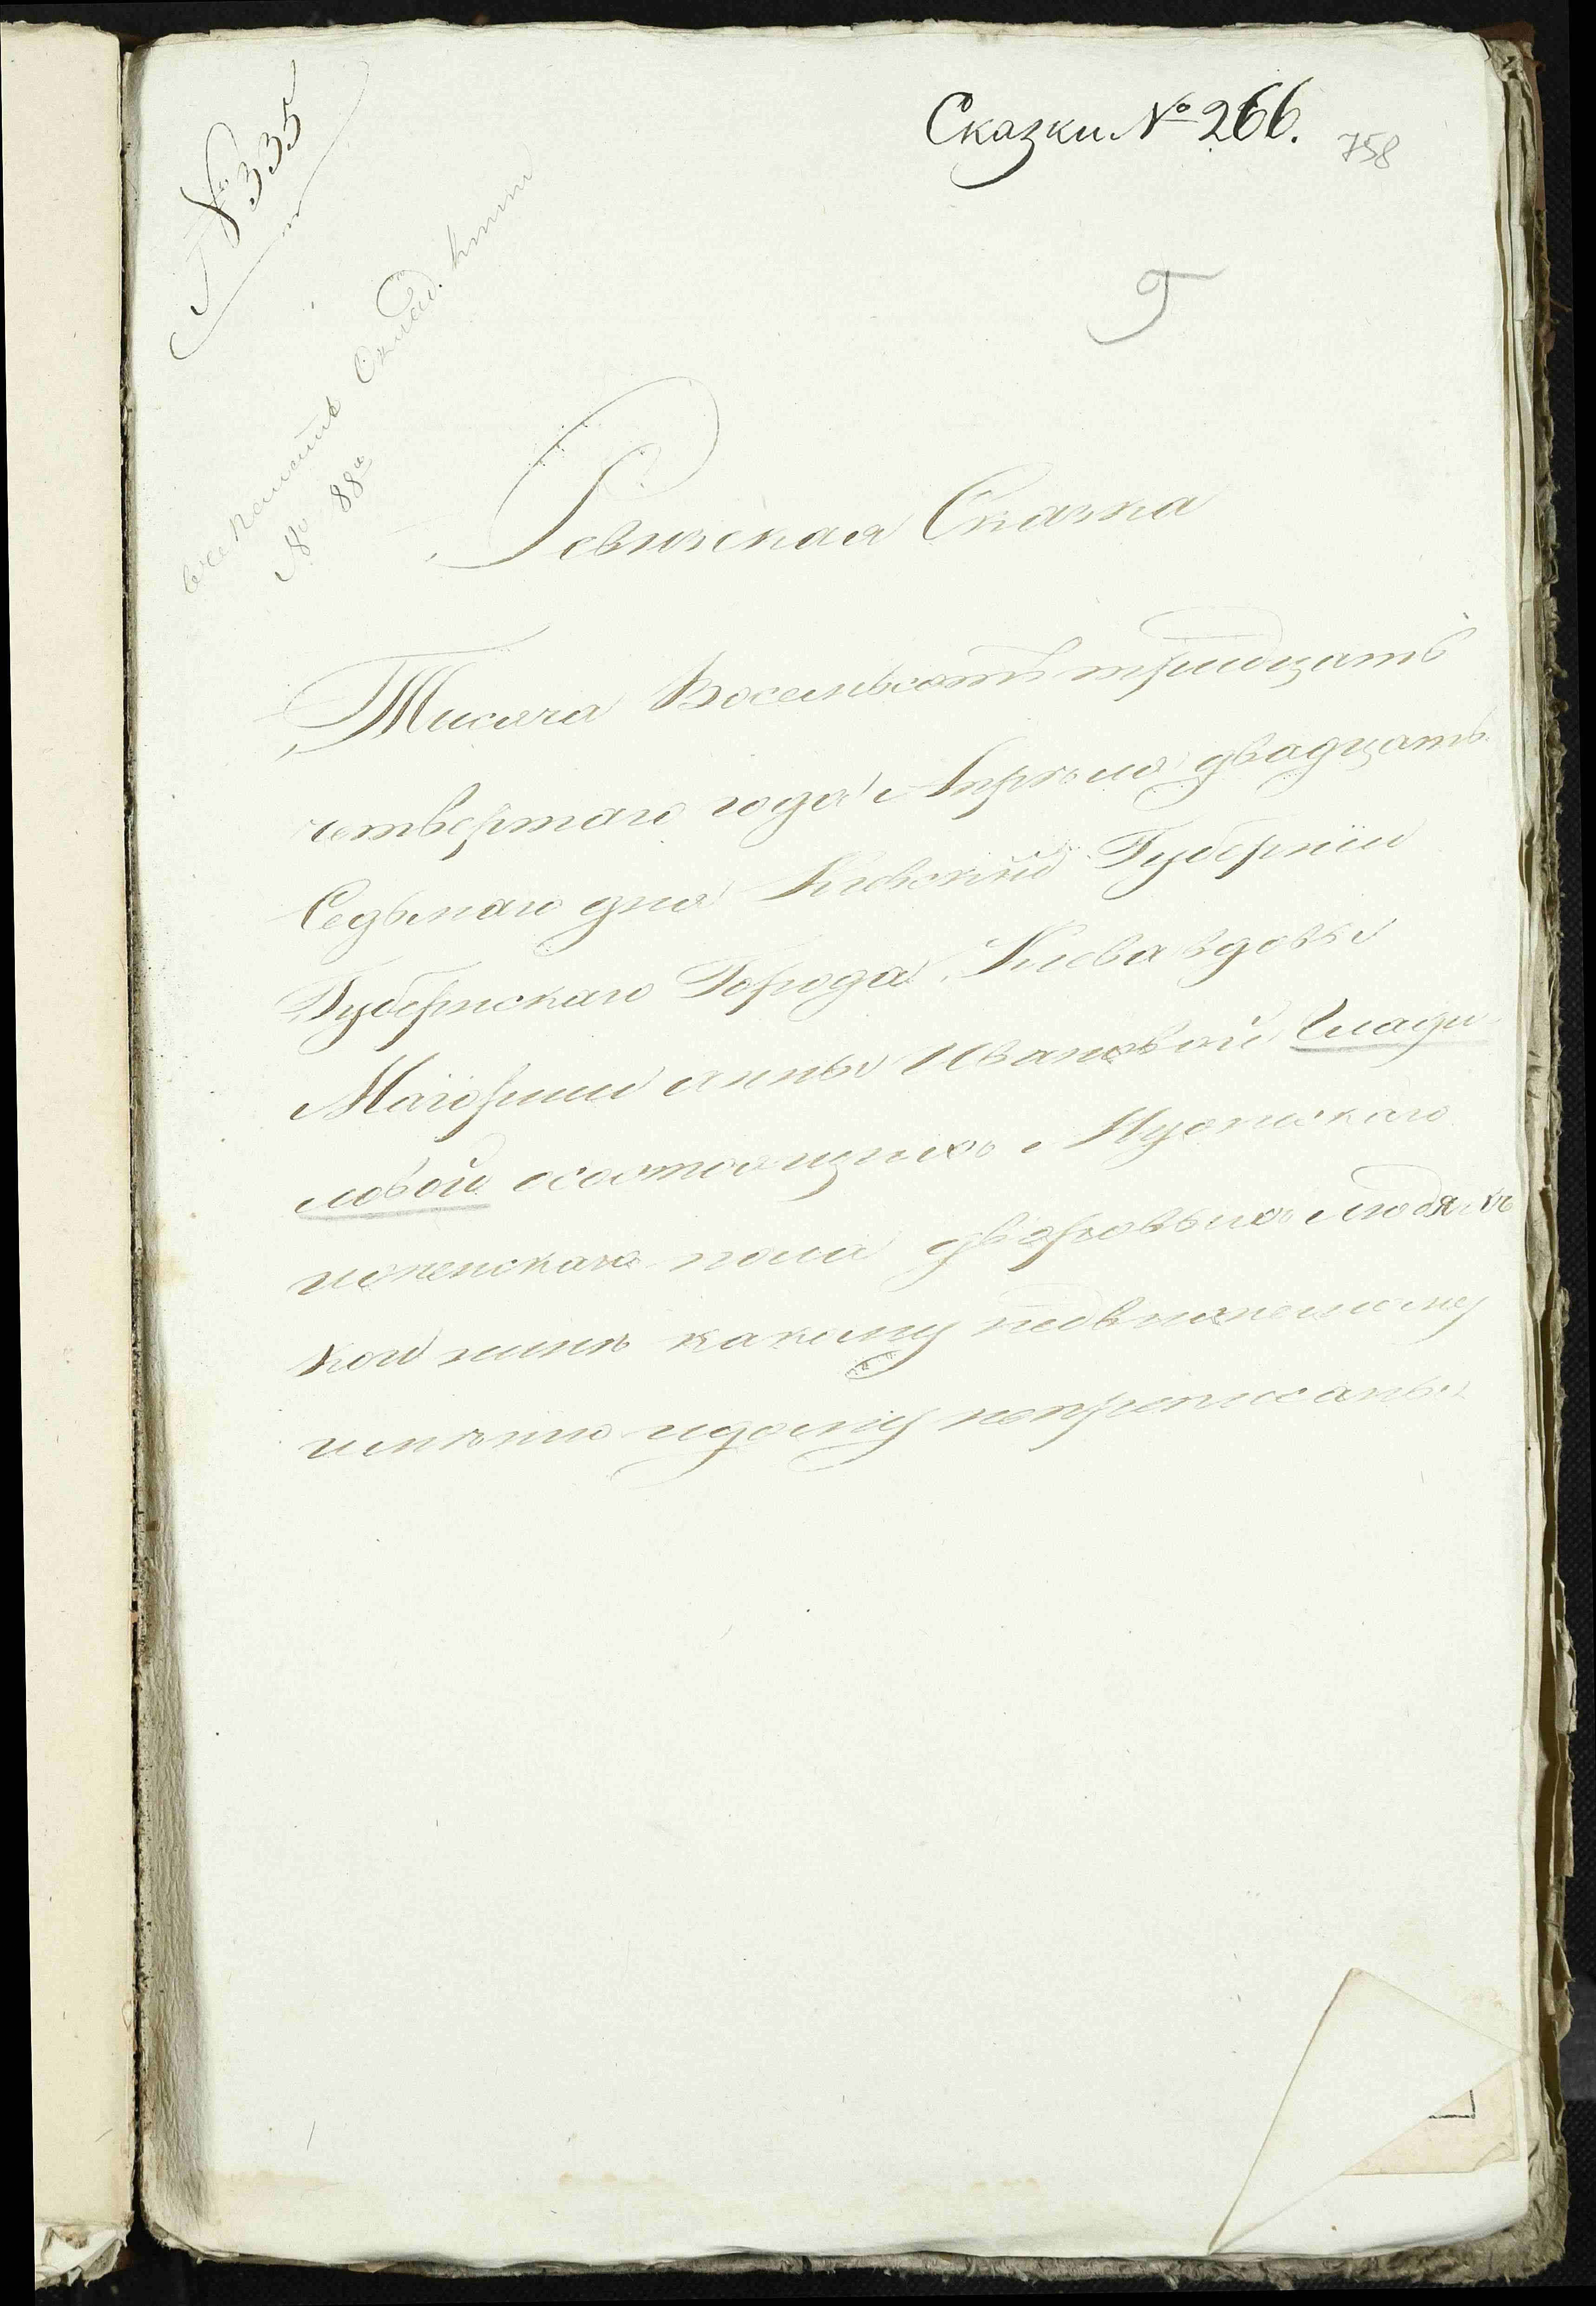 № 335
Сказки № 266.
758
9
Оклад. книги
№ 88й
Ревизская Сказка
Тисяча Восемьсотъ тридцать
четвертаго года Апреля двадцать
Седьмаго дня Киевской Губернїи
Губернскаго Города Киева вдовы
Маіорши Анны Ивановой Глади
ловой осостоящихъ Мужескаго
иженскаго пола дворовыхъ людяхъ
кои никъ какому недвижемому
имению идому неприписаны